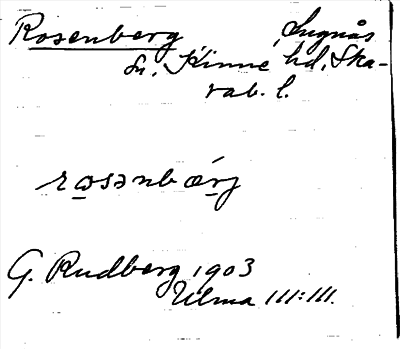 Rosenberg Lugnås
sn. Kinne hd. Ska-
rab. l.
rosənbærj
G. Rudberg 1903
Utlma III:III.